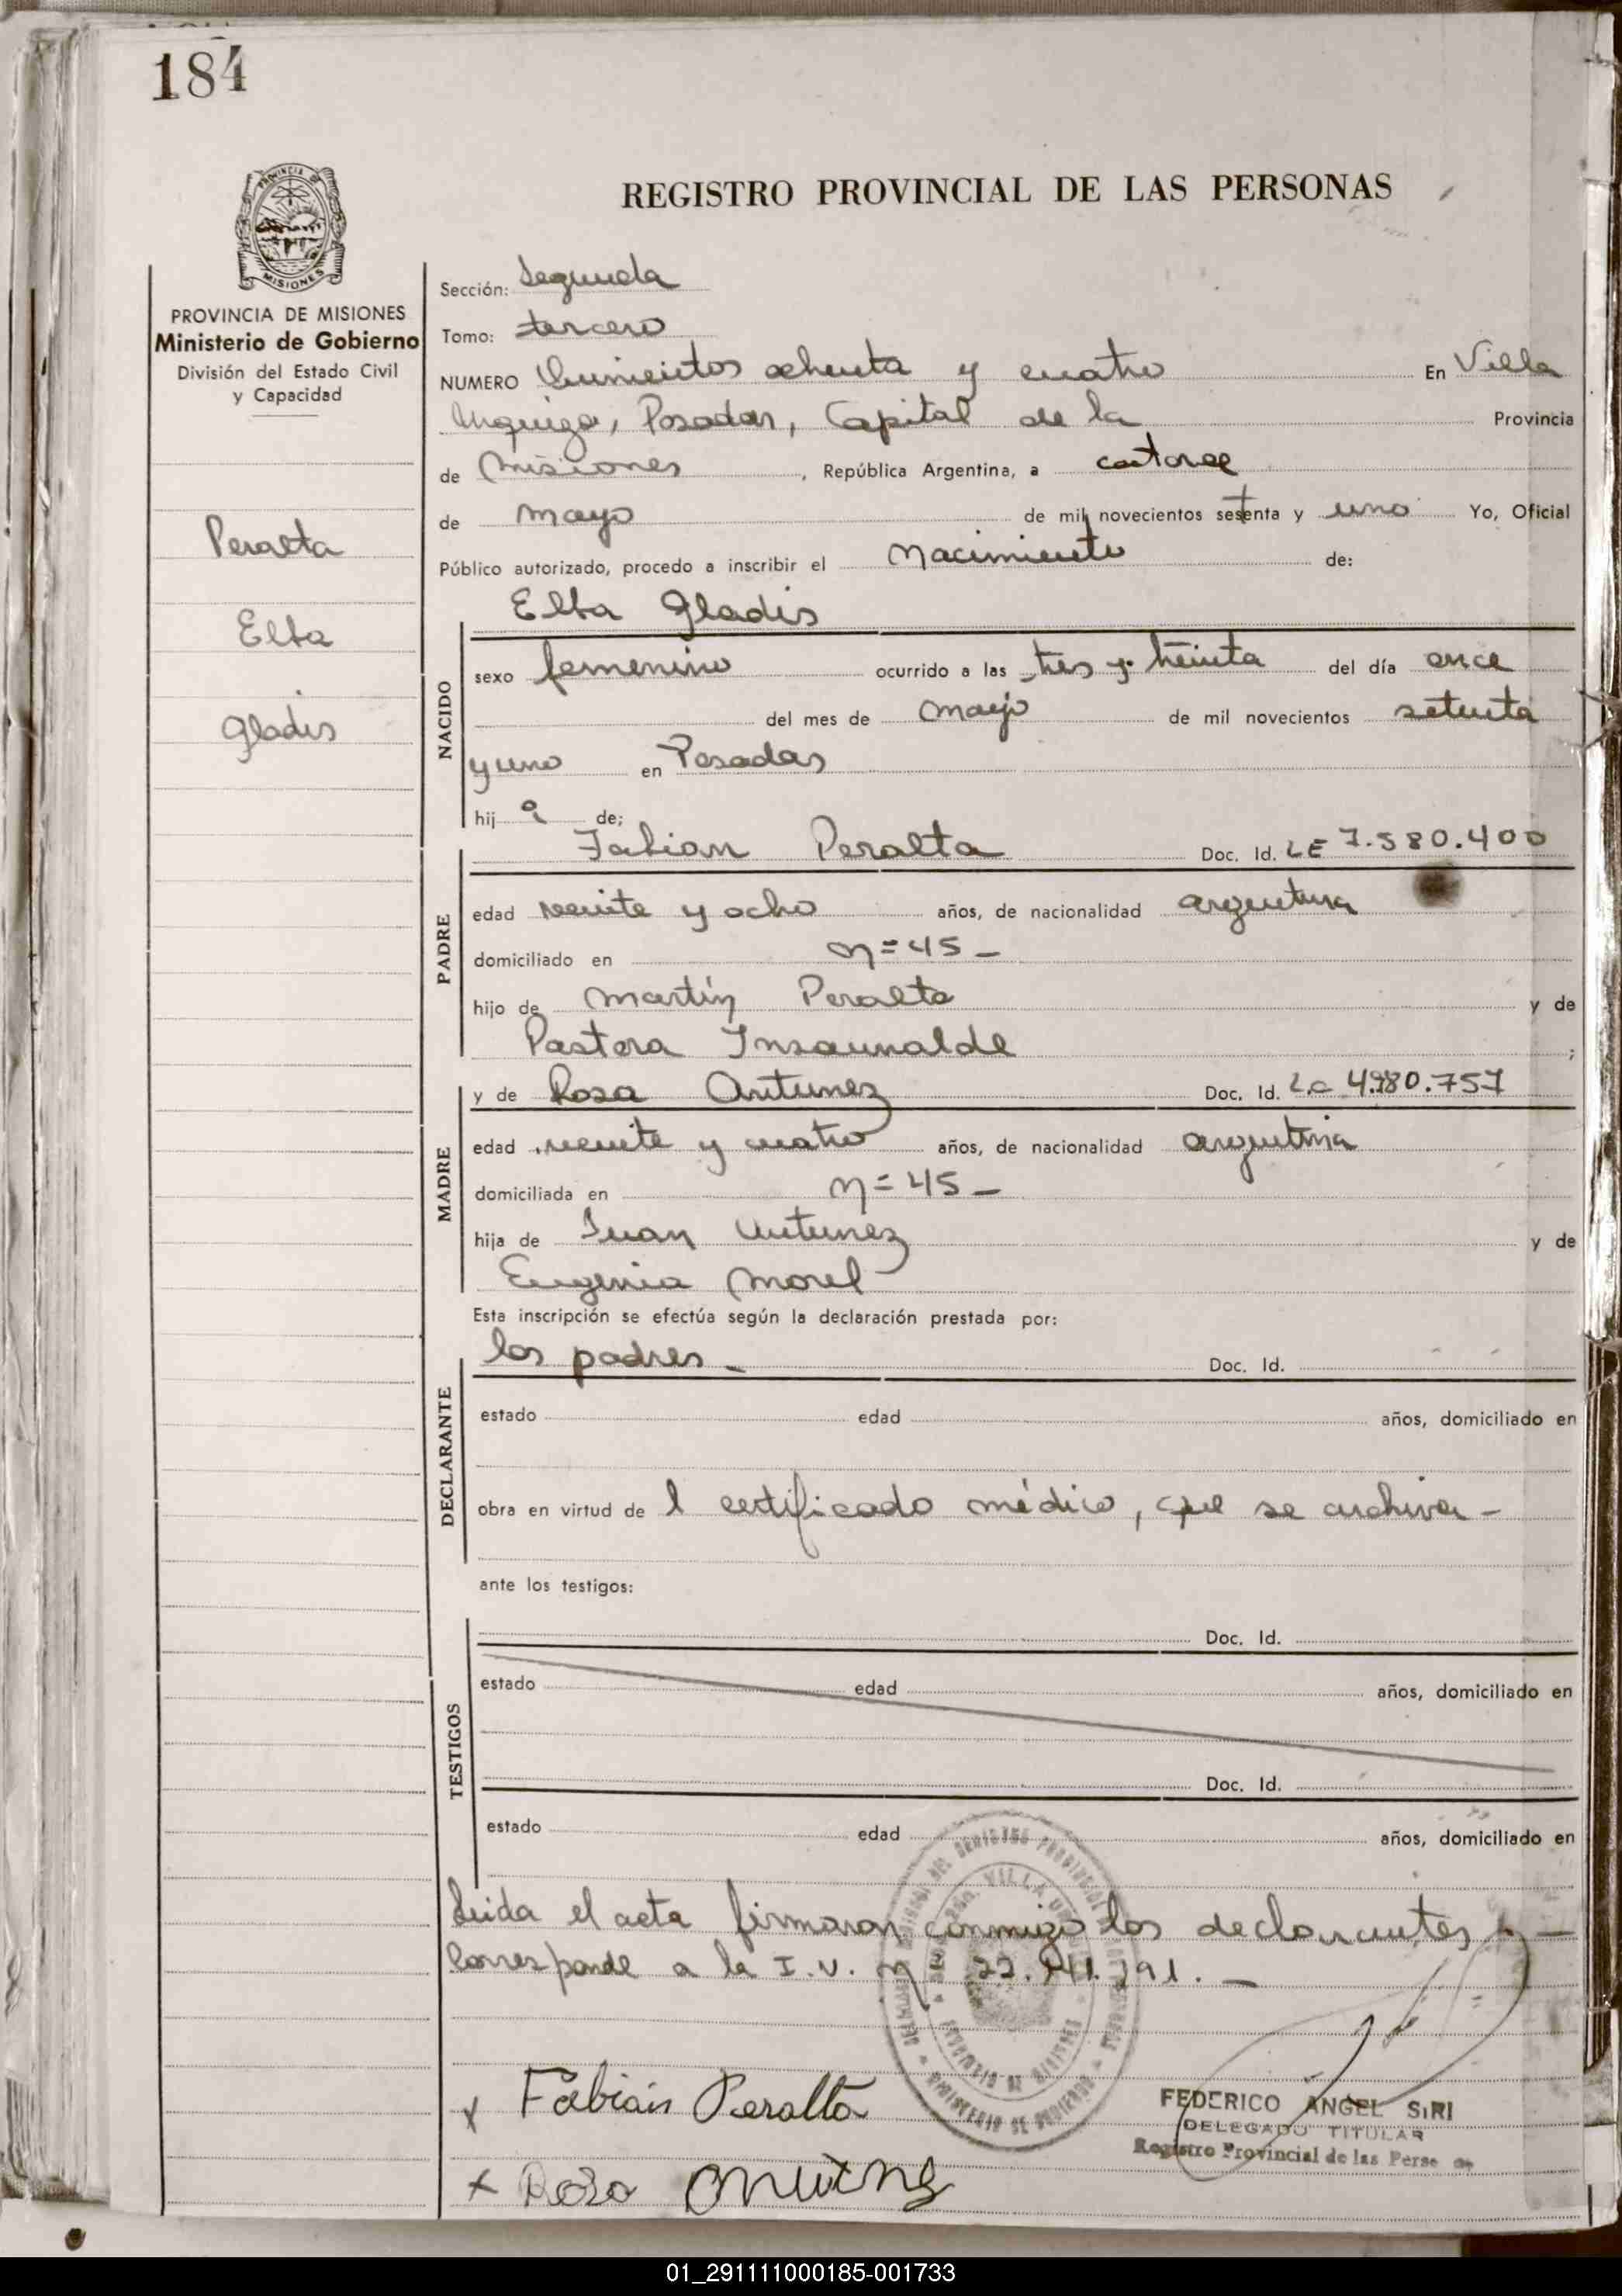 184
PROVINCIA DE
MISIONES
REGISTRO PROVINCIAL DE LAS PERSONAS
PROVINCIA DE MISIONES
Ministerio de Gobierno
División del Estado Civil
y Capacidad
Peralta
Elba
Gladis
Sección: Segunda
Tomo: tercero
NUMERO Quinientos ochenta y cuatro En Villa
Urquiza, Posadas, Capital de la Provincia
de Misiones, República Argentina, a catorce
de mayo de mil novecientos setenta y uno Yo, Oficial
Público autorizado, procedo a inscribir el Nacimiento de:
Elba Gladis
NACIDO
sexo femenino ocurrido a las tres y treinta del día once
del mes de mayo de mil novecientos setenta
y uno en Posadas
hij a de:
Fabian Peralta Doc. Id. LE 7.580.400
PADRE
edad veinte y ocho años, de nacionalidad argentina
domiciliado en n=45-
hijo de Martín Peralta y de
Pastora Insaurralde ;
y de Rosa Antunez Doc. Id. LC 4.980.757
MADRE
edad veinte y cuatro años, de nacionalidad argentina
domiciliada en n=45-
hija de Juan Antunez y de
Eugenia Morel
Esta inscripción se efectúa según la declaración prestada por:
los padres - Doc. Id.
DECLARANTE
estado edad años, domiciliado en
obra en virtud de l certificado médico, que se archiva -
ante los testigos:
Doc. Id.
TESTIGOS
estado edad años, domiciliado en
Doc. Id.
estado edad años, domiciliado en
Leida el acta firmaron conmigo los declarantes
Corresponde a la I.V. nº 22. 291. -
x Fabián Peralta
FEDERICO ANGEL SIRI
DELEGADO TITULAR
Registro Provincial de las Perso as
x Rosa
01_291111000185-001733